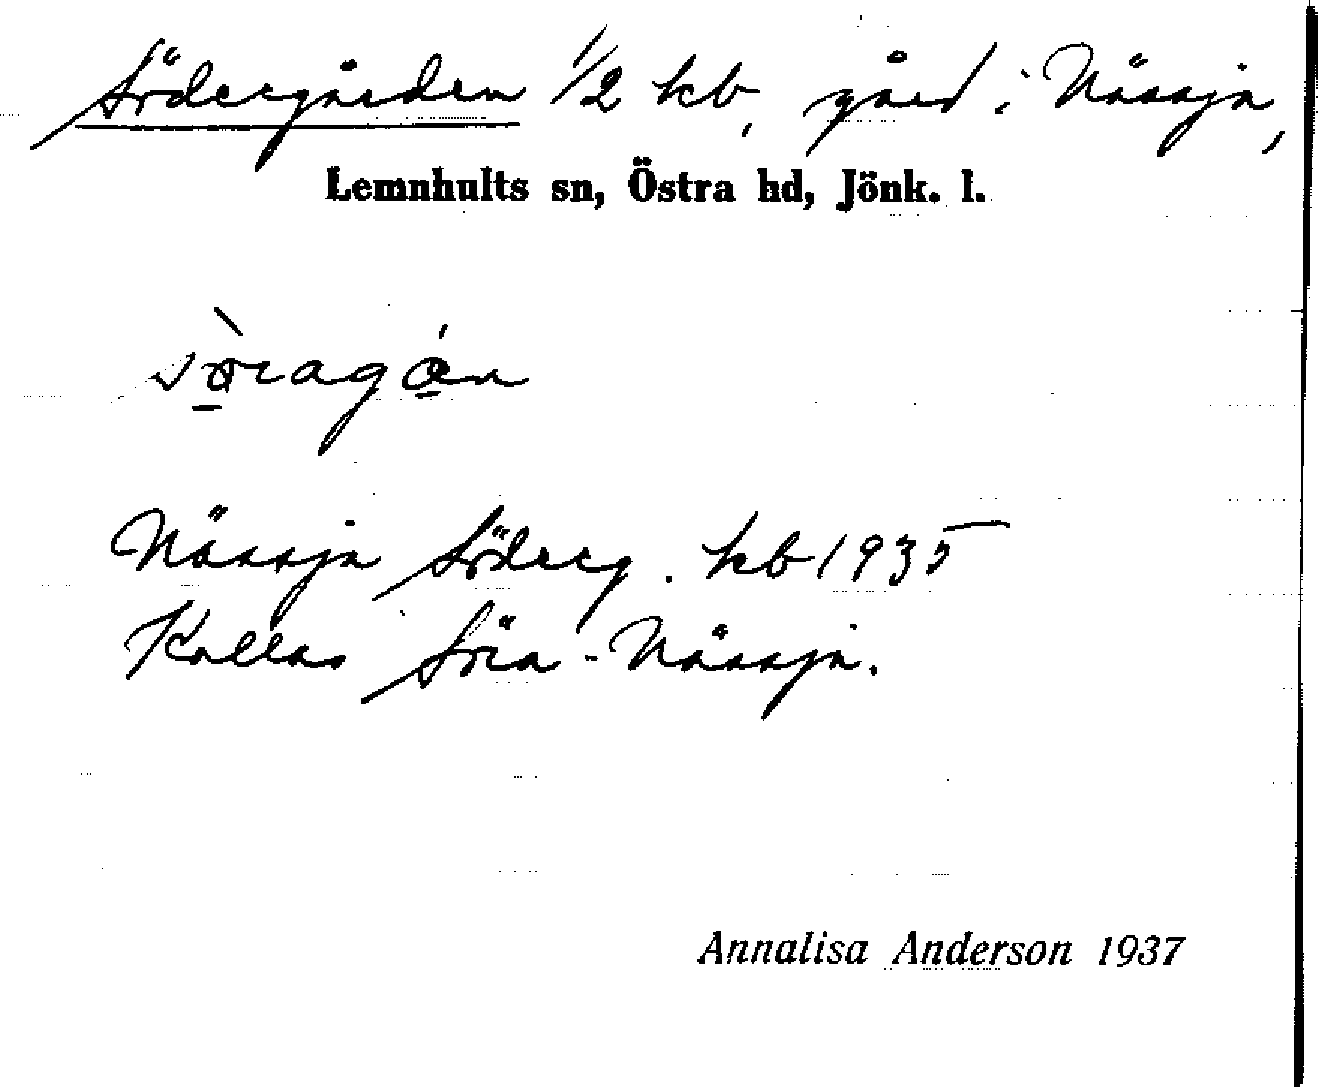 Södergården 1/2 kb, gård i Nässja,
Lemnhults sn, Östra hd, Jönk. l.
sö̀ragǻn
Nässja Söderg. kb 1935
Kallas Söra-Nässja.
Annalisa Anderson 1937